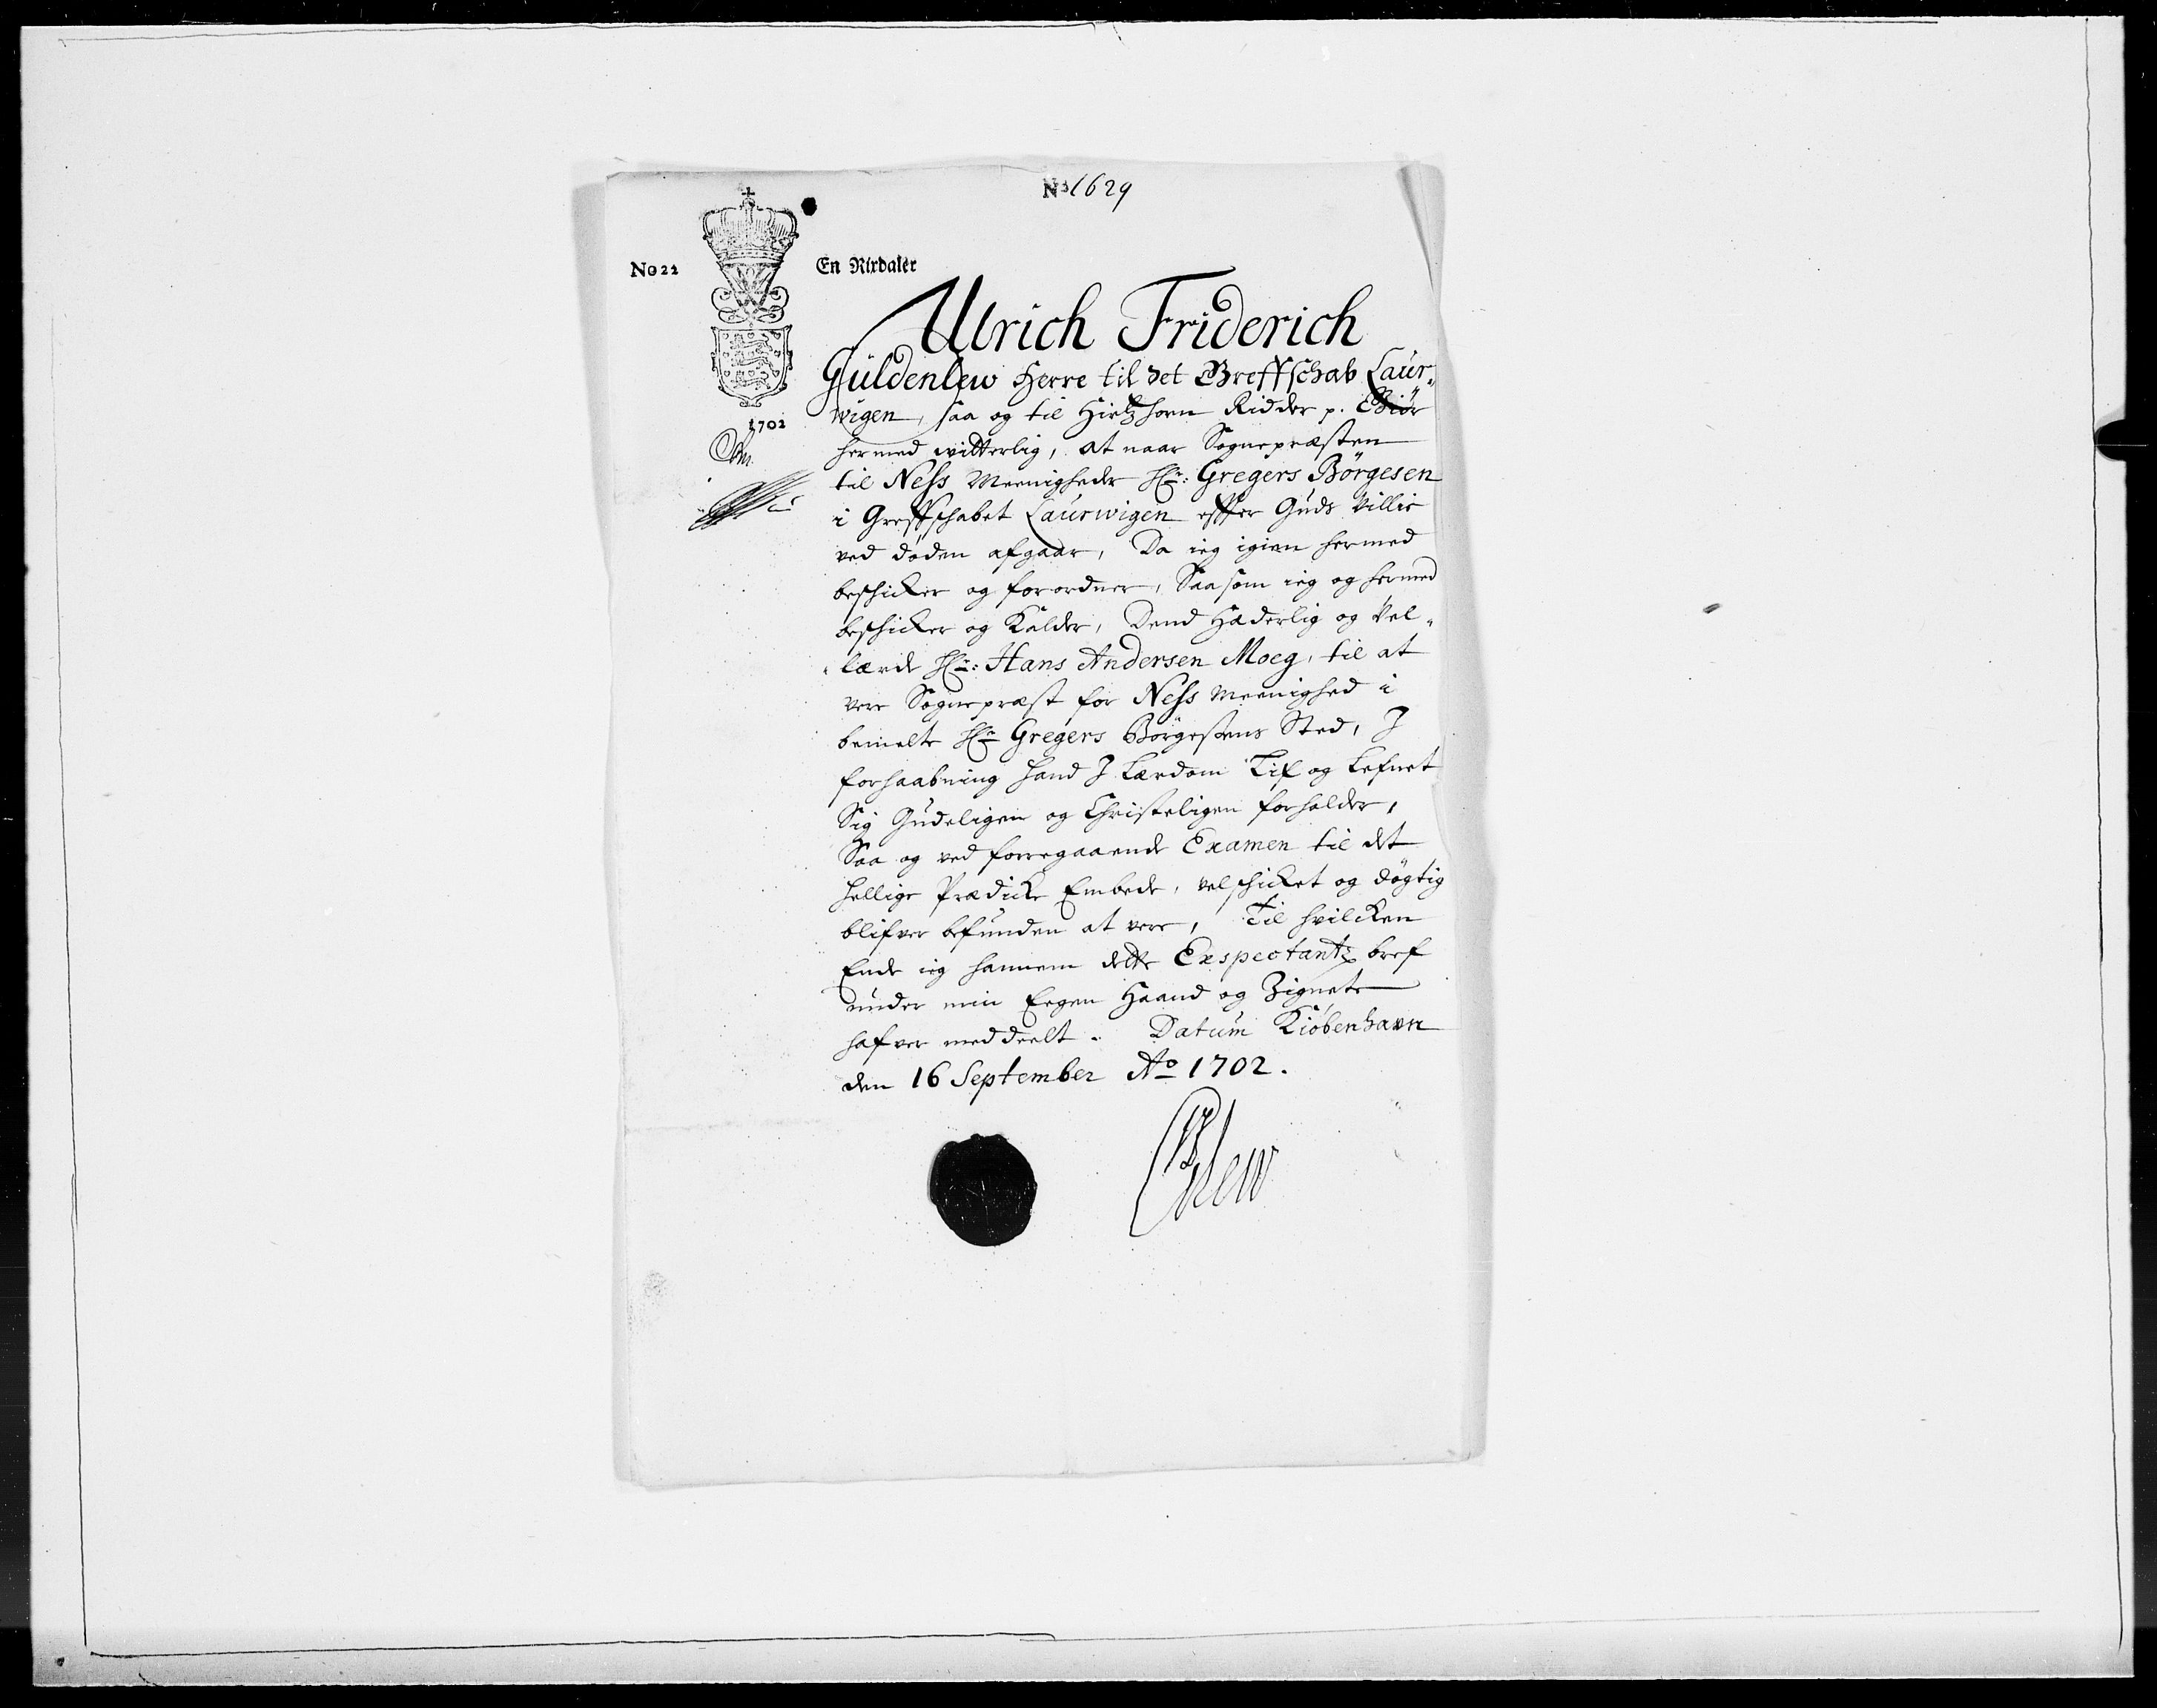 No 1629
No 22
En Rixdaler
1702
Ulrich Friderich
Güldenlew Herre til det Greffschab Laur-
wigen, saa og til Hirtzhorn Ridder p. Giör
hermed witterlig, at naar Sognepræsten
til Ness Meenigheder Hr: Gregers Börgesen
i Greffschabet Laurwigen effter Guds Villie
ved döden afgaar, Da ieg igien hermed
beschicker og forordner, Saasom ieg og hermed
beschicker og Kalder, Dend Hæderlig og Vel-
lærde Hr: Hans Andersen Moeg, til at
vere Sognepræst for Ness Meenighed i
bemelte Hr Gregers Börgesens Sted, I
forhaabning hand I Lærdom Lif og Lefnet
Sig Gudeligen og Christeligen forholder,
Saa og ved forregaaende Examen til det
hellige Prædicke Embede, velschicket og dögtig
blifver befunden at vere, Til hvilcken
Ende ieg hannem dette Exspectantz bref
under min Eegen Haand og Zignete
hafver meddeelt. Datum Kiöbenhavn
den 16 September Ao 1702.